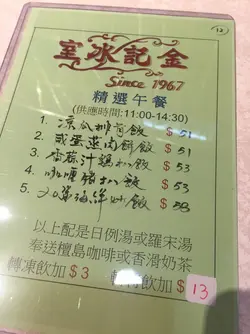 12
室冰記金
Since 1967
精選午餐
(供應時間:11:00-14:30)
1. 涼瓜排骨飯 $51
2. 咸蛋蒸肉餅飯 $51
3. 香蒜汁鷄扒飯 $53
4. 咖喱豬扒飯 $53
5. 海鮮炒飯 $58
以上配是日例湯或羅宋湯
奉送檀島咖啡或香滑奶茶
轉凍飲加 $3
飲加 $ 13